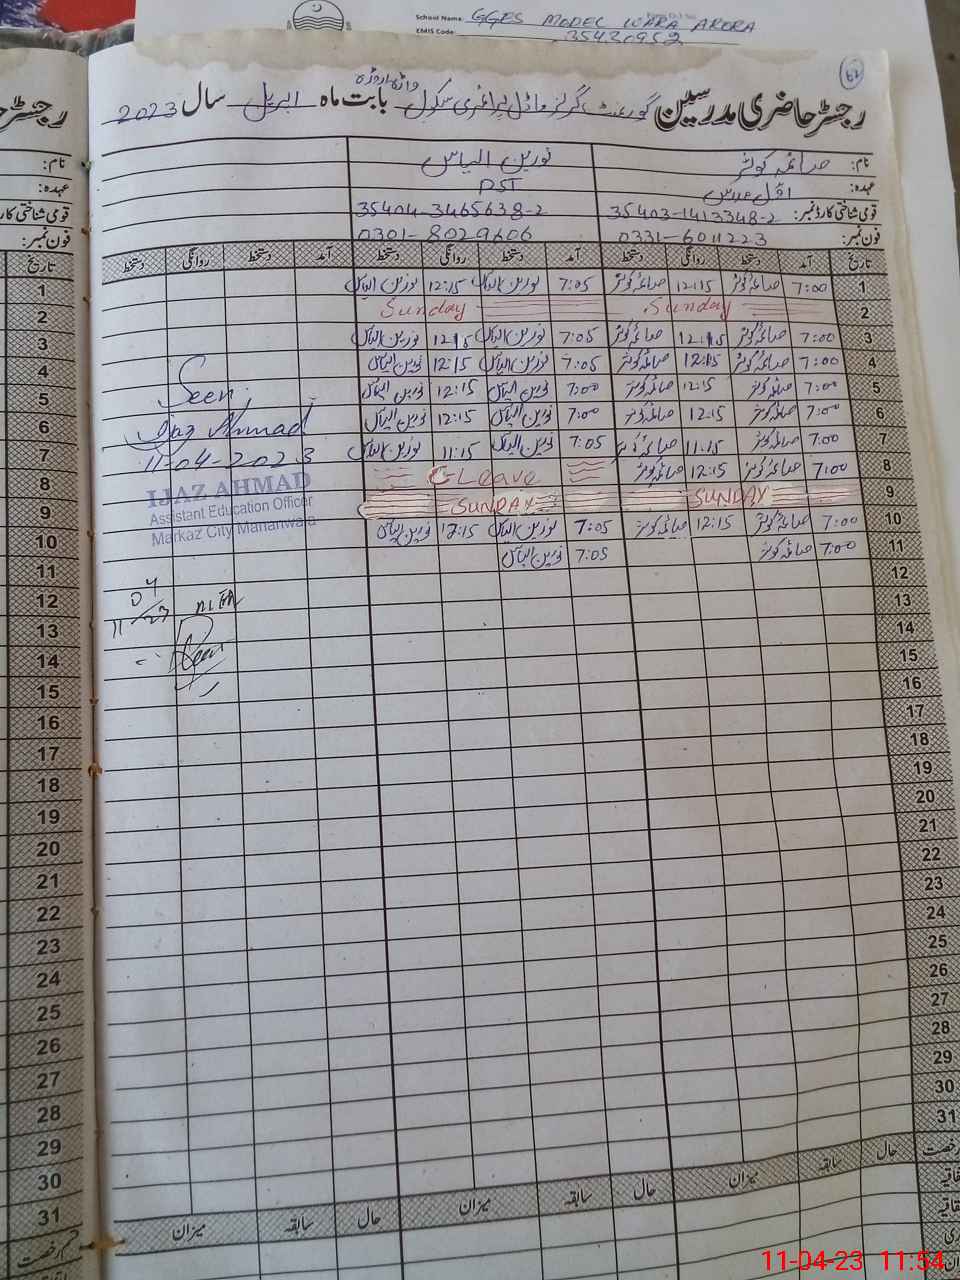 School Name: GGPS MODEL WARA ARORA
EMIS Code: 35430952
19
واڑہ اروڑہ
رجسٹر حاضری مدرسین گورنمنٹ گرلز ماڈل پرائمری سکول بابت ماہ اپریل سال 2023
نام: صائمہ کوثر نورین الیاس
عہدہ: PST
قومی شناختی کارڈ نمبر: 35403-1413348-2 35404-3465638-2
فون نمبر: 0331-6011223 0301-8029606
تاریخ آمد دستخط روانگی دستخط آمد دستخط روانگی دستخط آمد دستخط روانگی دستخط
1 7:00 صائمہ کوثر 12:15 صائمہ کوثر 7:05 نورین الیاس 12:15 نورین الیاس
2 Sunday Sunday
3 7:00 صائمہ کوثر 12:15 صائمہ کوثر 7:05 نورین الیاس 12:15 نورین الیاس
4 7:00 صائمہ کوثر 12:15 صائمہ کوثر 7:05 نورین الیاس 12:15 نورین الیاس
5 7:00 صائمہ کوثر 12:15 صائمہ کوثر 7:00 نورین الیاس 12:15 نورین الیاس
6 7:00 صائمہ کوثر 12:15 صائمہ کوثر 7:00 نورین الیاس 12:15 نورین الیاس
7 7:00 صائمہ کوثر 11:15 صائمہ کوثر 7:05 نورین الیاس 11:15 نورین الیاس
8 7:00 صائمہ کوثر 12:15 صائمہ کوثر Leave
9 SUNDAY SUNDAY
10 7:00 صائمہ کوثر 12:15 صائمہ کوثر 7:05 نورین الیاس 12:15 نورین الیاس
11 7:00 صائمہ کوثر 7:05 نورین الیاس
12
13
14
15
16
17
18
19
20
21
22
23
24
25
26
27
28
29
30
31
رخصت حال سابقہ میزان حال سابقہ میزان حال سابقہ میزان
Seen
Ijaz Ahmad
11-04-2023
IJAZ AHMAD
Assistant Education Officer
Markaz City Mananwala
رجسٹر
نام:
عہدہ:
قومی شناختی کارڈ
فون نمبر:
تاریخ
1
2
3
4
5
6
7
8
9
10
11
12
13
14
15
16
17
18
19
20
21
22
23
24
25
26
27
28
29
30
31
قسم رخصت
11-04-23 11:54